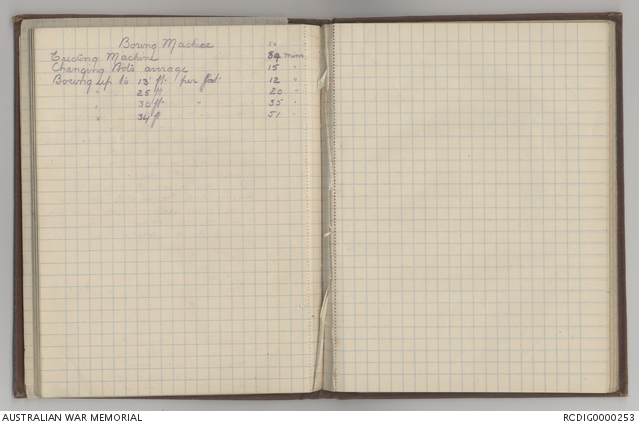 Boring Machine
Erecting Machine 30 mins
Changing Bits average 15 "
Boring up to 13 ft. per foot 12 "
" 25 ft " 20 "
" 30 ft " 35 "
" 34 ft " 51 "
AUSTRALIAN WAR MEMORIAL RCDIG0000253